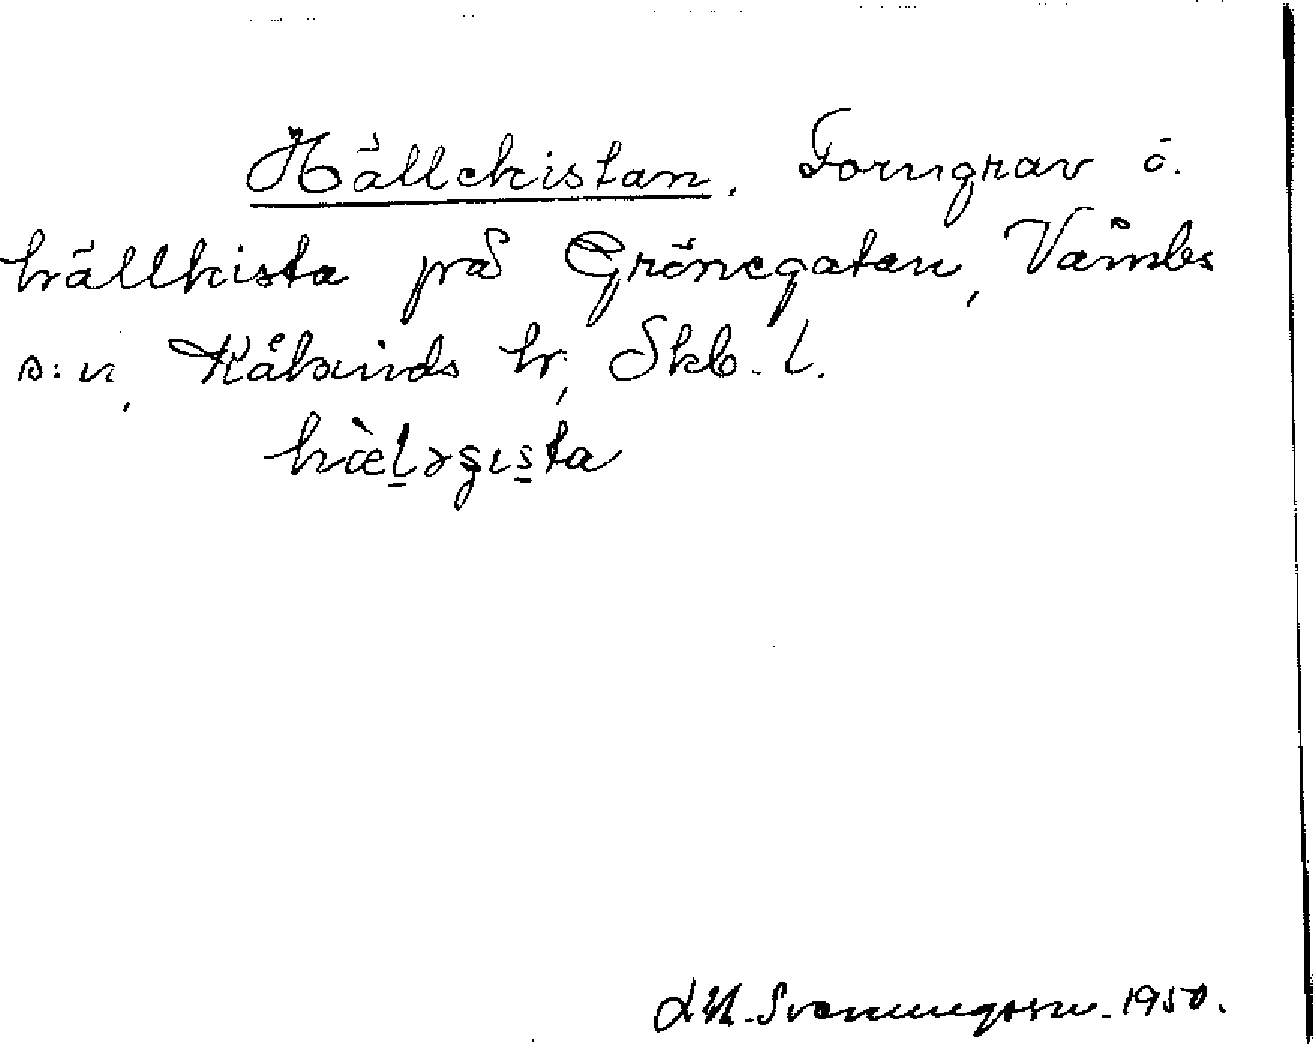 Hällekistan. Forngrav ö.
hällkista på Grönegatan, Våmbs
s:n, Kåkinds hr, Skb. l.
hæ̀ḻəgɩs̱ta
Svenungsson. 1950.